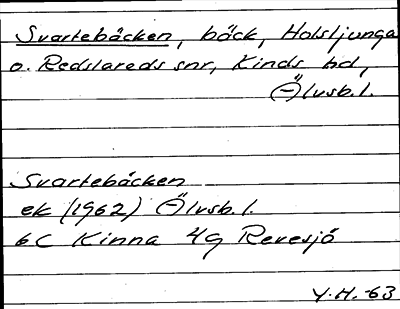 Svartebäcken, bäck, Holsljunga
o. Redslareds snr, Kinds hd,
Älvsb.l.
Svartebäcken
ek (1962) Älvsb.l.
6C Kinna 4g Revesjö
Y.H.-63